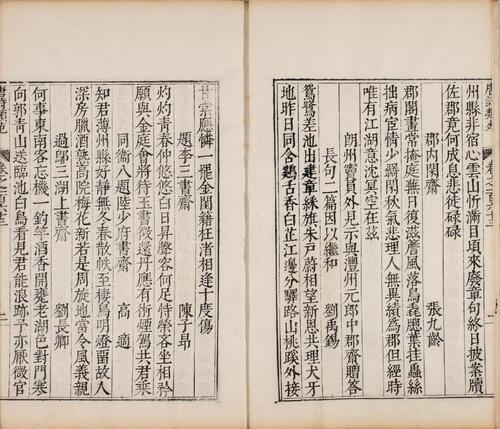 州縣非宿心雲山忻滿目頃來廢章句終日披案牘
佐郡竟何成息悲徒碌碌
郡内閑齋 張九齡
郡閣晝常掩庭蕪日復滋簷風落鳥毳䆫葉挂蟲絲
拙病宦情少羇閑秋氣悲理人無異績爲郡但經時
唯有江湖意沈冥空在兹
朗州竇員外見示與澧州元郎中郡齋贈答
長句二篇因以繼和 劉禹錫
鴛鷺差池出建章綵旗朱戸蔚相望新恩共理犬牙
地昨日同含鷄舌香白芷江邊分驛路山桃蹊外接
甘棠應憐一罷金閨籍枉渚相逢十度傷
題李三書齋 陳子昂
灼灼青春仲悠悠白日昇聲容何足恃榮客坐相矜
願與金庭會將待玉書徵還丹應有術煙駕共君乘
同衛八題陸少府書齋 高適
知君薄州縣好靜無冬春散帙至棲鳥明燈留故人
深房臘酒熟高院梅花新若是周旋地當令風義親
過鄔三湖上書齋 劉長卿
何事東南客忘機一釣竿酒香開甕老湖色對門寒
向郭青山送臨池白鳥看見君能浪跡予亦厭微官